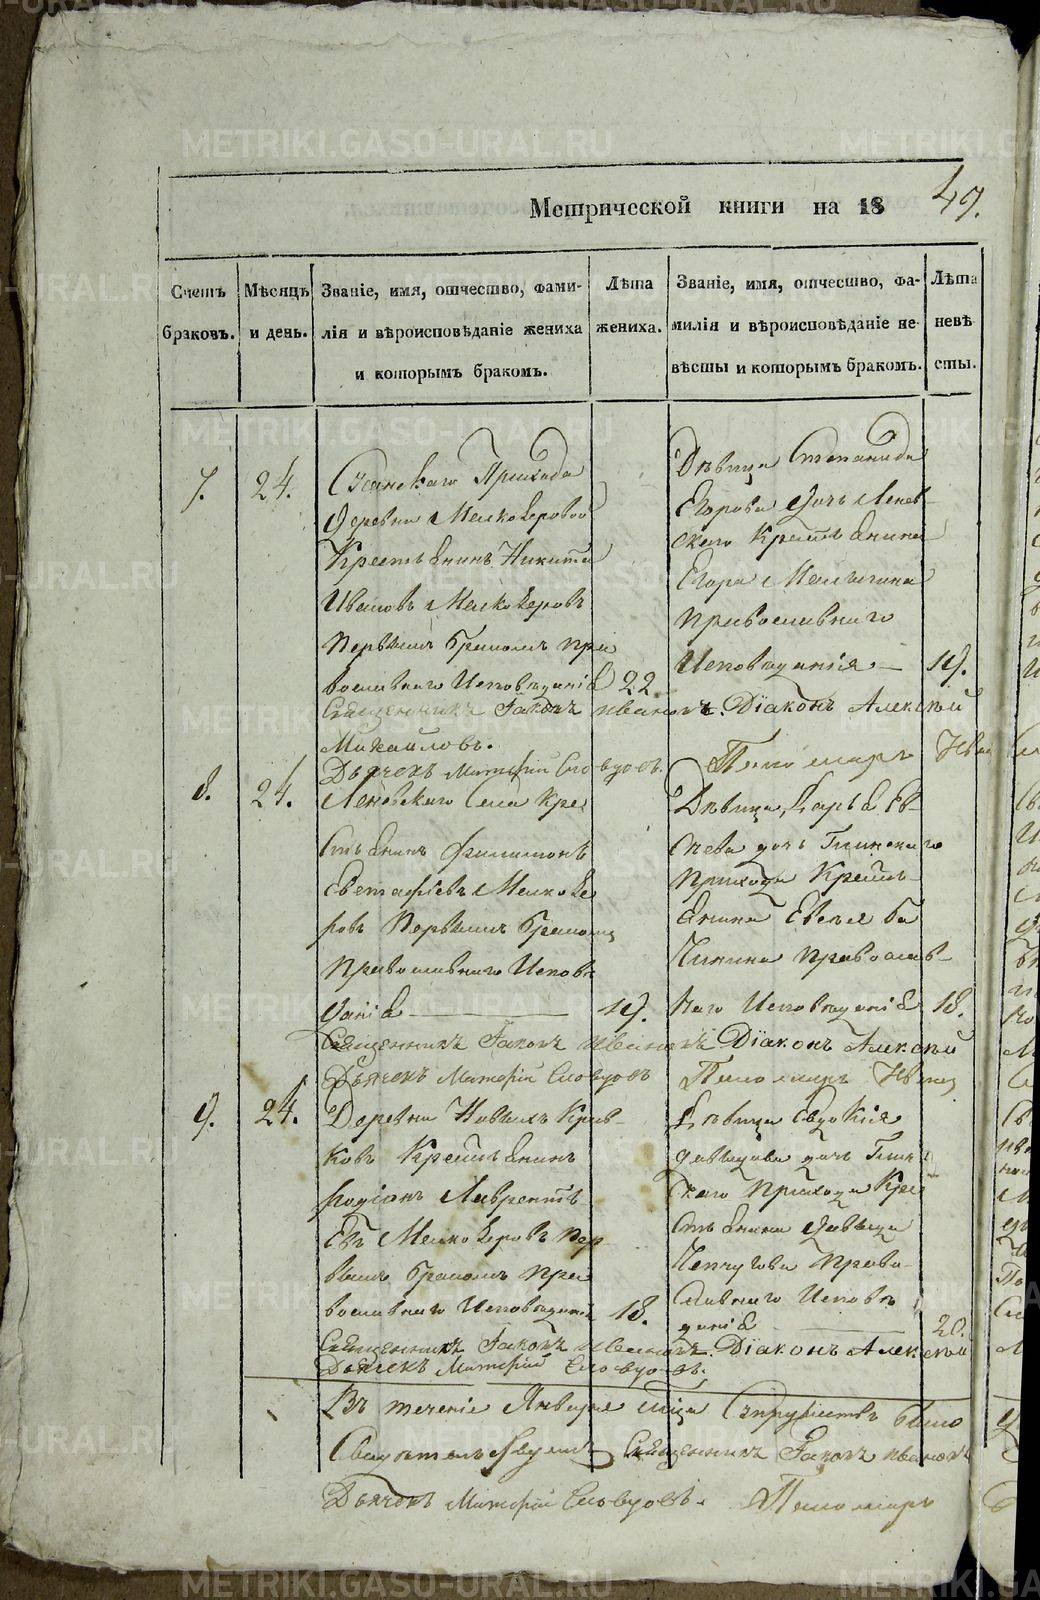 Метрической книги на 18 49.
Счетъ браковъ.
Мѣсяцъ и день.
Званіе, имя, отчество, фами-
лія и вѣроисповѣданіе жениха
и которымъ бракомъ.
Лѣта жениха.
Званіе, имя, отчество, фа-
милія и вѣроисповѣданіе не-
вѣсты и которымъ бракомъ.
Лѣта невѣ
сты.
7. 24.
Прихода
деревни Мелкозеровой
Крестьянинъ Никита
Ивановъ Мелкозеровъ
первымъ бракомъ пра
вославнаго исповѣданія 22.
Дѣвица Степанида
Егорова дочь Ленев-
скаго крестьянина
Егора
православнаго
исповѣданія — 19.
Священникъ Іаковъ Ивановъ. Діаконъ Алексѣй
Михайловъ.
Дьячекъ Матфій Словцовъ. Пономарь Иван
8. 24.
Леневскаго села кре
стьянинъ Филимонъ
Евстафіевъ Мелкозе
ровъ первымъ бракомъ
православнаго исповѣ
данія — 19.
Дѣвица Дарья Ев-
сѣева дочь Глинскаго
прихода крестьь-
янина Евсея
православ-
наго исповѣданія 18.
Священникъ Іаковъ Ивановъ Діаконъ Алексѣй
Дьячекъ Матфій Словцовъ Пономарь Иван
9. 24.
Деревни Новыхъ Крив-
ковъ крестьянинъ
Родіонъ Лаврентьь
евъ Мелкозеровъ пер
вымъ бракомъ пра
вославнаго исповѣданія 18.
Дѣвица Евдокія
Давыдова дочь Глин
скаго прихода кре
стьянина Давыда
Чепчугова право
славнаго исповѣ
данія — 20.
Священникъ Іаковъ Ивановъ. Діаконъ Алексѣй
Дьячекъ Матфій Словцовъ.
Въ теченіе Января мца супружествъ было
Священникъ Іаковъ Ивановъ
Дьячекъ Матфій Словцовъ. Пономарь
METRIKI.GASO-URAL.RU